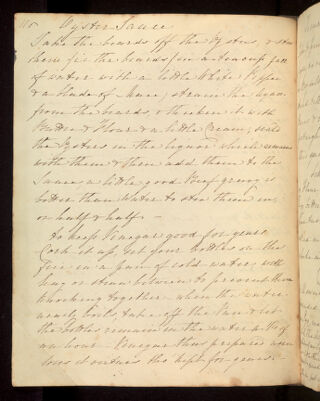 Oyster Sauce
Take the beards off the Oysters, & stew
them (i.e. the beards) in a teacup full
of water with a little White Pepper
& a blade of Mace; strain the liquor
from the beards, & thicken it with
Butter & Flour & a little Cream; scald
the Oysters in the liquor which remains
with them & then add them to the
Sauce, a little good Beef gravy is
better than Water to stew them in,
or half & half –
To keep Vinegar good for years
Cork it up, set your bottles on the
fire in a pan of cold water, with
hay or straw between to prevent them
knocking together – when the water
nearly boils, take off the Pan & let
the bottles remain in the water
an hour – Vinegar thus prepared never
loses its virtues tho' kept for years –